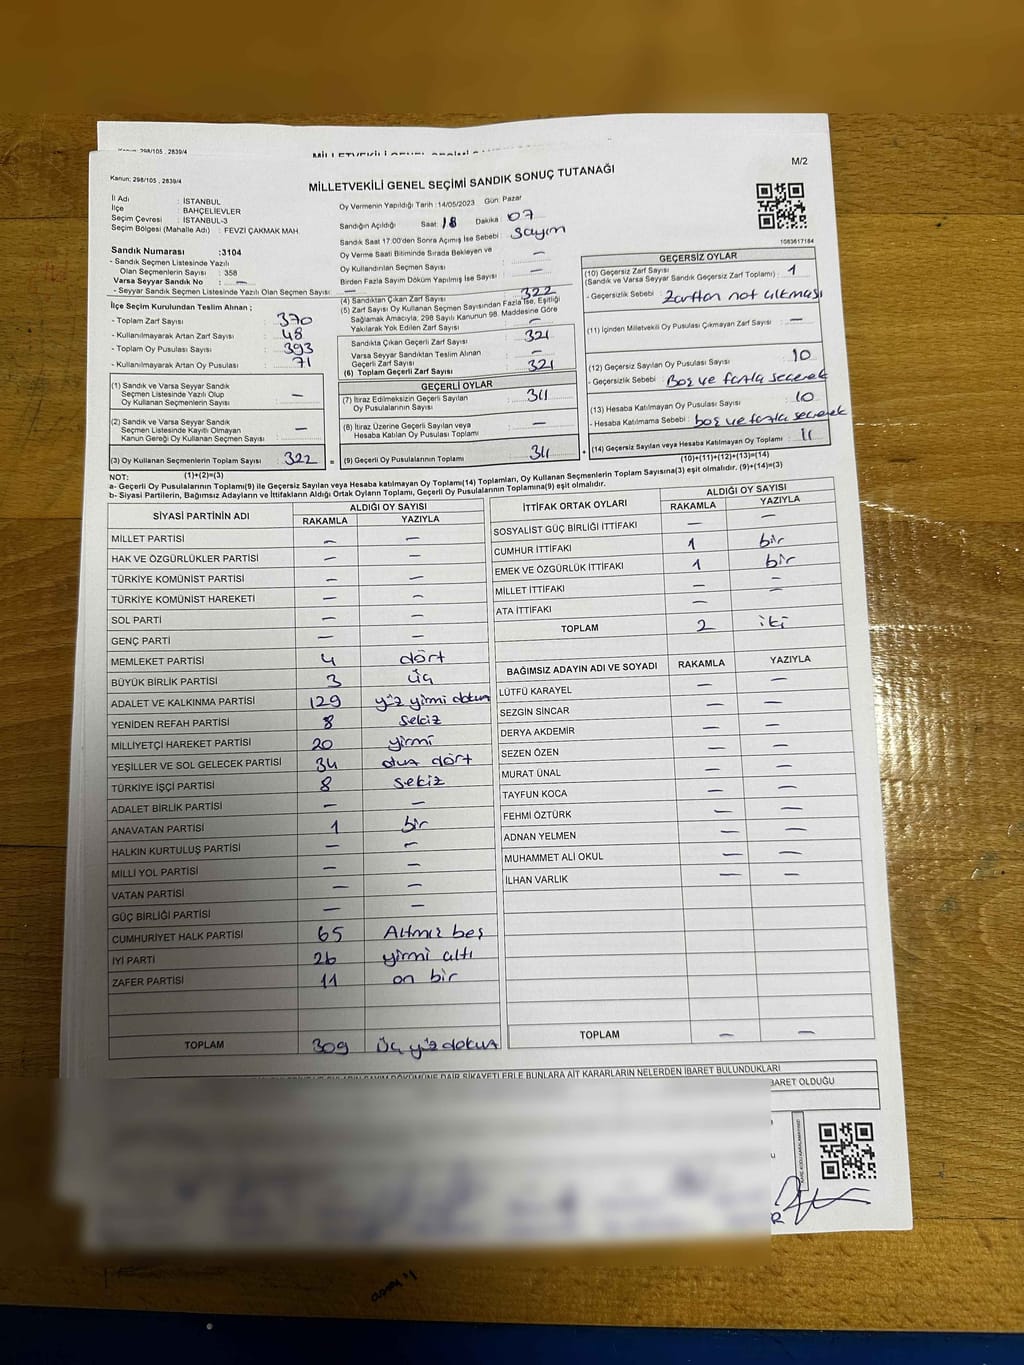 Kanun: 298/105 , 2839/4
Kanun: 298/105 , 2839/4
M/2
MİLLETVEKİLİ GENEL SEÇİMİ SANDIK SONUÇ TUTANAĞI
İl Adı : İSTANBUL
İlçe : BAHÇELİEVLER
Seçim Çevresi : İSTANBUL-3
Seçim Bölgesi (Mahalle Adı) : FEVZİ ÇAKMAK MAH.
Sandık Numarası :3104
- Sandık Seçmen Listesinde Yazılı
Olan Seçmenlerin Sayısı : 358
Varsa Seyyar Sandık No : —
- Seyyar Sandık Seçmen Listesinde Yazılı Olan Seçmen Sayısı : —
Oy Vermenin Yapıldığı Tarih :14/05/2023 Gün: Pazar
Sandığın Açıldığı Saat: 18 Dakika: 07
Sandık Saat 17:00'den Sonra Açımış İse Sebebi : Sayım
Oy Verme Saati Bitiminde Sırada Bekleyen ve
Oy Kullandırılan Seçmen Sayısı : —
Birden Fazla Sayım Döküm Yapılmış İse Sayısı : —
1083617184
İlçe Seçim Kurulundan Teslim Alınan ;
- Toplam Zarf Sayısı : 370
- Kullanılmayarak Artan Zarf Sayısı : 48
- Toplam Oy Pusulası Sayısı : 393
- Kullanılmayarak Artan Oy Pusulası : 71
(1) Sandık ve Varsa Seyyar Sandık
Seçmen Listesinde Yazılı Olup
Oy Kullanan Seçmenlerin Sayısı : —
(2) Sandık ve Varsa Seyyar Sandık
Seçmen Listesinde Kayıtlı Olmayan
Kanun Gereği Oy Kullanan Seçmen Sayısı : —
(3) Oy Kullanan Seçmenlerin Toplam Sayısı : 322
(1)+(2)=(3)
(4) Sandıktan Çıkan Zarf Sayısı : 322
(5) Zarf Sayısı Oy Kullanan Seçmen Sayısından Fazla İse, Eşitliği
Sağlamak Amacıyla; 298 Sayılı Kanunun 98. Maddesine Göre
Yakılarak Yok Edilen Zarf Sayısı : —
Sandıkta Çıkan Geçerli Zarf Sayısı : 321
Varsa Seyyar Sandıktan Teslim Alınan
Geçerli Zarf Sayısı : —
(6) Toplam Geçerli Zarf Sayısı : 321
GEÇERLİ OYLAR
(7) İtiraz Edilmeksizin Geçerli Sayılan
Oy Pusulasının Sayısı : 311
(8) İtiraz Üzerine Geçerli Sayılan veya
Hesaba Katılan Oy Pusulası Toplamı : —
= (9) Geçerli Oy Pusulalarının Toplamı : 311
GEÇERSİZ OYLAR
(10) Geçersiz Zarf Sayısı : 1
(Sandık ve Varsa Seyyar Sandık Geçersiz Zarf Toplamı)
- Geçersizlik Sebebi : Zarftan not çıkması
(11) İçinden Milletvekili Oy Pusulası Çıkmayan Zarf Sayısı : —
(12) Geçersiz Sayılan Oy Pusulası Sayısı : 10
- Geçersizlik Sebebi : Boş ve fazla seçerek
(13) Hesaba Katılmayan Oy Pusulası Sayısı : 10
- Hesaba Katılmama Sebebi : boş ve fazla seçerek
+ (14) Geçersiz Sayılan veya Hesaba Katılmayan Oy Toplamı : 11
(10)+(11)+(12)+(13)=(14)
NOT:
a- Geçerli Oy Pusulalarının Toplamı(9) ile Geçersiz Sayılan veya Hesaba katılmayan Oy Toplamı(14) Toplamları, Oy Kullanan Seçmenlerin Toplam Sayısına(3) eşit olmalıdır. (9)+(14)=(3)
b- Siyasi Partilerin, Bağımsız Adayların ve İttifakların Aldığı Ortak Oyların Toplamı, Geçerli Oy Pusulalarının Toplamına(9) eşit olmalıdır.
SİYASİ PARTİNİN ADI ALDIĞI OY SAYISI
RAKAMLA YAZIYLA
MİLLET PARTİSİ — —
HAK VE ÖZGÜRLÜKLER PARTİSİ — —
TÜRKİYE KOMÜNİST PARTİSİ — —
TÜRKİYE KOMÜNİST HAREKETİ — —
SOL PARTİ — —
GENÇ PARTİ — —
MEMLEKET PARTİSİ 4 dört
BÜYÜK BİRLİK PARTİSİ 3 üç
ADALET VE KALKINMA PARTİSİ 129 yüz yirmi dokuz
YENİDEN REFAH PARTİSİ 8 sekiz
MİLLİYETÇİ HAREKET PARTİSİ 20 yirmi
YEŞİLLER VE SOL GELECEK PARTİSİ 34 otuz dört
TÜRKİYE İŞÇİ PARTİSİ 8 sekiz
ADALET BİRLİK PARTİSİ — —
ANAVATAN PARTİSİ 1 bir
HALKIN KURTULUŞ PARTİSİ — —
MİLLİ YOL PARTİSİ — —
VATAN PARTİSİ — —
GÜÇ BİRLİĞİ PARTİSİ — —
CUMHURİYET HALK PARTİSİ 65 Altmış beş
İYİ PARTİ 26 yirmi altı
ZAFER PARTİSİ 11 on bir
TOPLAM 309 Üç yüz dokuz
İTTİFAK ORTAK OYLARI ALDIĞI OY SAYISI
RAKAMLA YAZIYLA
SOSYALİST GÜÇ BİRLİĞİ İTTİFAKI — —
CUMHUR İTTİFAKI 1 bir
EMEK VE ÖZGÜRLÜK İTTİFAKI 1 bir
MİLLET İTTİFAKI — —
ATA İTTİFAKI —
TOPLAM 2 iki
BAĞIMSIZ ADAYIN ADI VE SOYADI RAKAMLA YAZIYLA
LÜTFÜ KARAYEL — —
SEZGİN SİNCAR — —
DERYA AKDEMİR — —
SEZEN ÖZEN — —
MURAT ÜNAL — —
TAYFUN KOCA — —
FEHMİ ÖZTÜRK — —
ADNAN YELMEN — —
MUHAMMET ALİ OKUL — —
İLHAN VARLIK — —
TOPLAM — —
DÖKÜMÜNE DAİR ŞİKAYETLERLE BUNLARA AİT KARARLARIN NELERDEN İBARET BULUNDUKLARI
BARET OLDUĞU